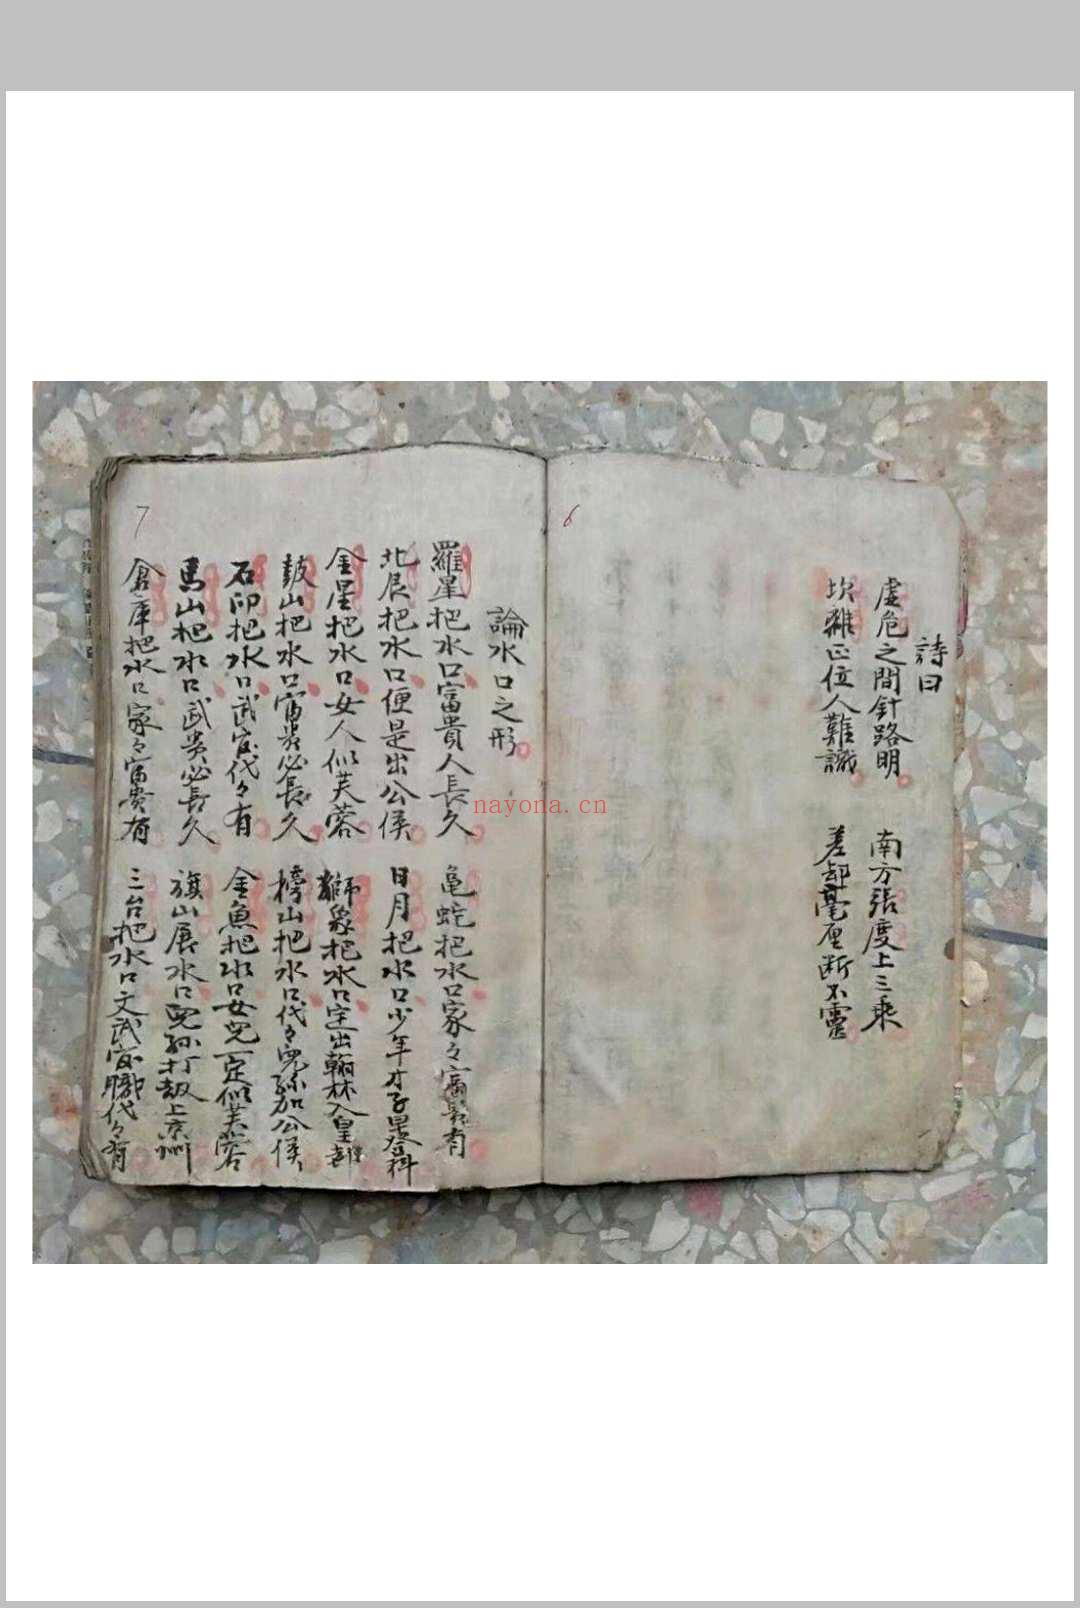 6
詩曰
虛危之間針路明 南方張度上三乘
坎離正位人難識 差却毫厘斷不靈
7
論水口之形
羅星把水口富貴人長久 龜蛇把水口家々富貴有
北辰把水口便是出公侯 日月把水口少年才子早登科
金星把水口女人似芙蓉 獅象把水口定出翰林入皇都
鼓山把水口富貴必長久 榜山把水口代々兒孫加公侯
石印把水口武官代々有 金魚把水口女兒一定似芙蓉
馬山把水口武貴必長久 旗山展水口兒孫打劫上京州
倉庫把水口家々富貴有 三台把水口文武官職代々有
nayona.cn